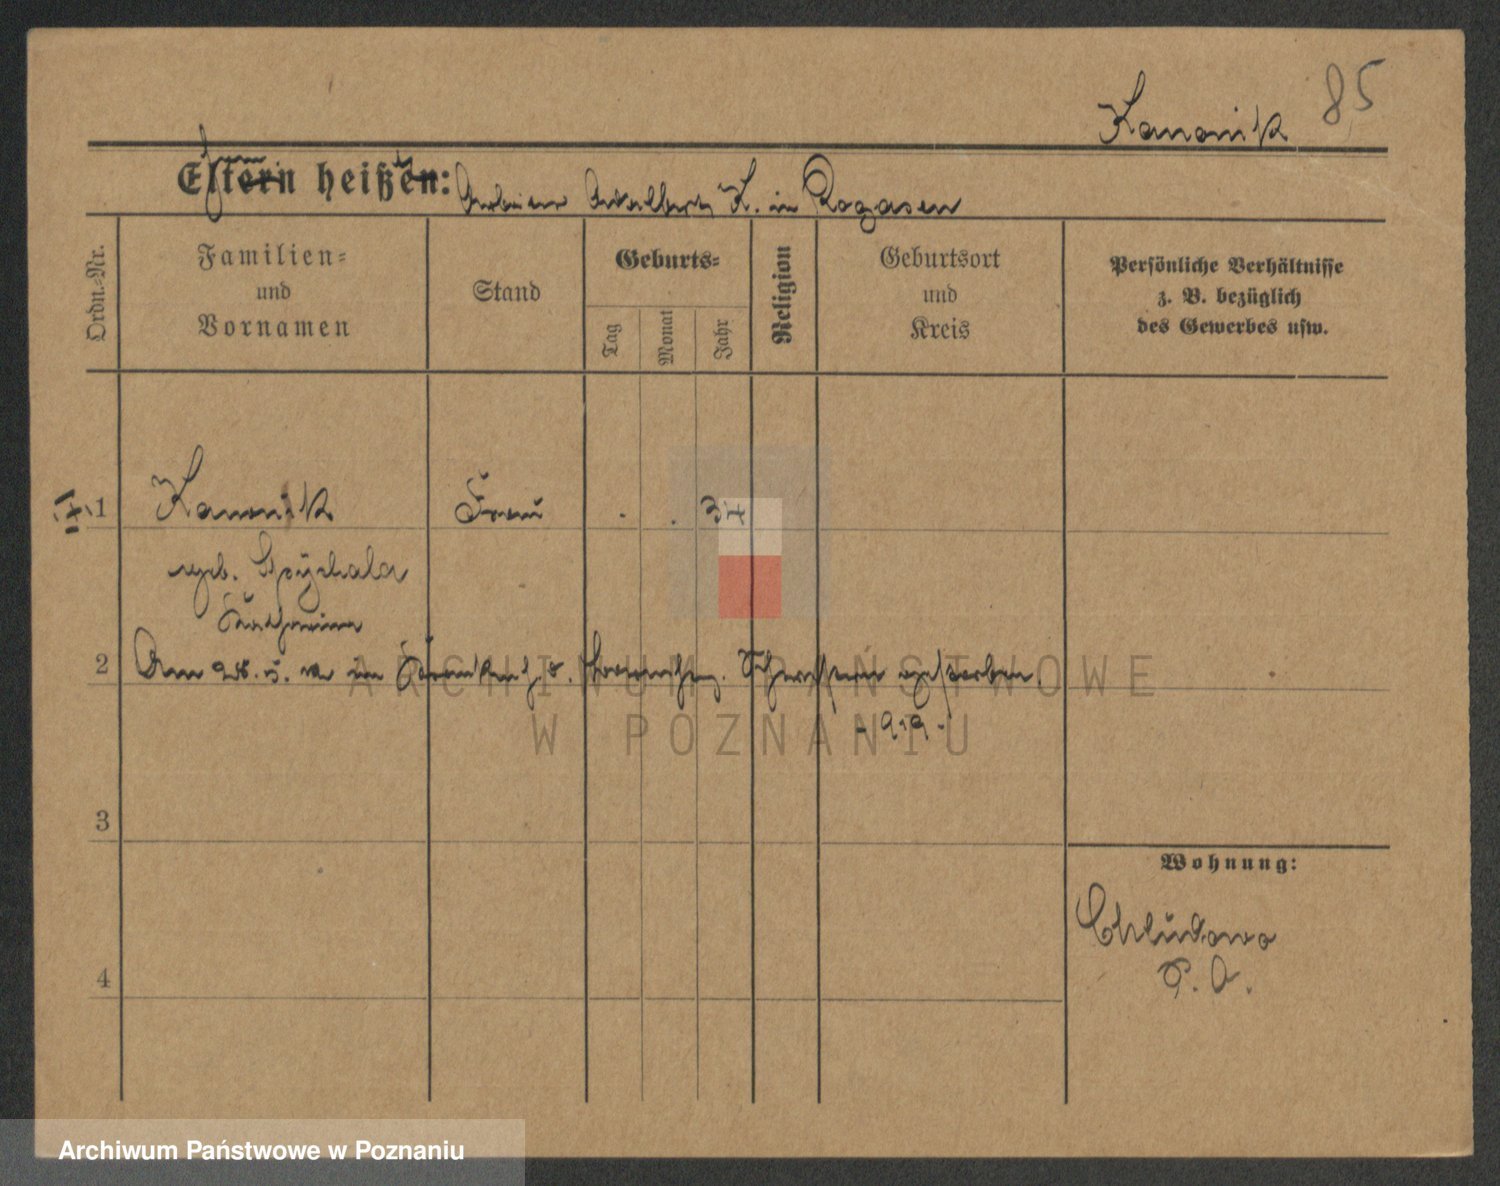 Kanonik 85
Eltern heißen: Arbeiter Adalbert K. in Rogasen
Ordn.-Nr.
Familien=
und
Vornamen
Stand
Geburts=
Tag
Monat
Jahr
Religion
Geburtsort
und
Kreis
Persönliche Verhältnisse
z. B. bezüglich
des Gewerbes usw.
1 Kanonik Frau . . 34
geb. Spychala
Katharina
2 Am 28. 5. in gestorben.
ARCHIWUM PAŃSTWOWE
W POZNANIU
3
Wohnung:
Chludowo
P. O.
4
Archiwum Państwowe w Poznaniu